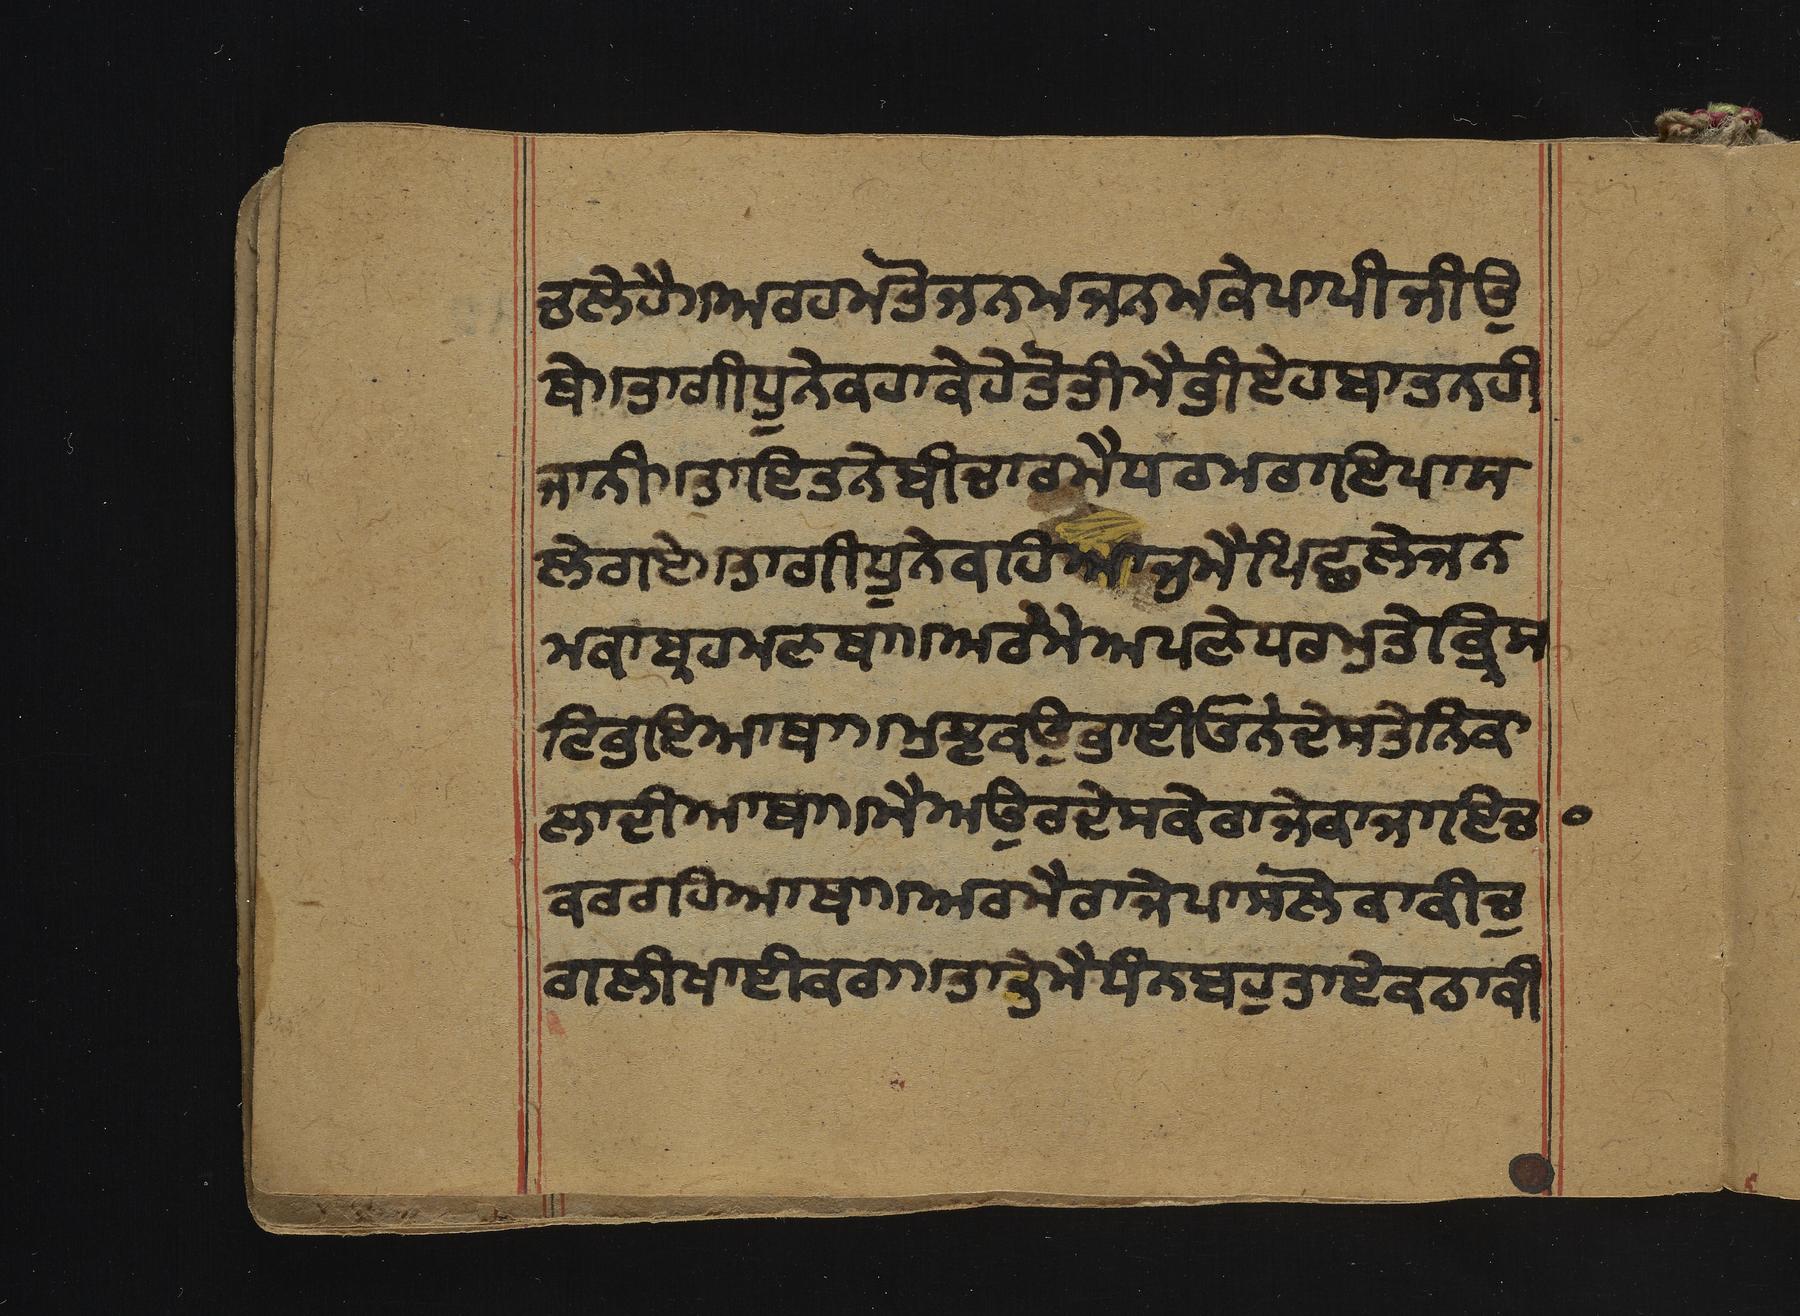 ਚਲੇਹੈ॥ਅਰਹਮਤੋਜਨਮਜਨਮਕੇਪਾਪੀਜੀਉ
ਥੇ॥ਤਾਗੀਧੁਨੇਕਹਾਕੇਹੇਤੋਤੀਮੈਤੀਏਹਬਾਤਨਹੀ
ਜਾਨੀ॥ਤਾਇਤਨੇਬੀਚਾਰਮੈਧਰਮਰਾਇਪਾਸ
ਲੇਗਏ॥ਤਾਗੀਧੁਨੇਕਹਿਆਜੁਮੈਪਿਛਲੇਜਨ
ਮਕਾਬ੍ਰਹਮਣਥਾ॥ਅਰਮੈਅਪਣੇਧਰਮੁਤੇਭ੍ਰਿਸ
ਟਿਭੁਇਆਥਾ॥ਮੁਝਕਉਭਾਈਓਨੇਦੇਸਤੇਨਿਕਾ
ਲਾਦੀਆਥਾ॥ਮੈਅਉਰਦੇਸਕੇਰਾਜੇਕਾਜਾਇਚ
ਕਰਰਹਿਆਥਾ॥ਅਰਮੈਰਾਜੇਪਾਸਲੋਕਾਕੀਚੁ
ਗਲੀਖਾਈਕਰਾ॥ਤਾਤੇਮੈਧਨਬਹੁਤਾਏਕਠਾਕੀ